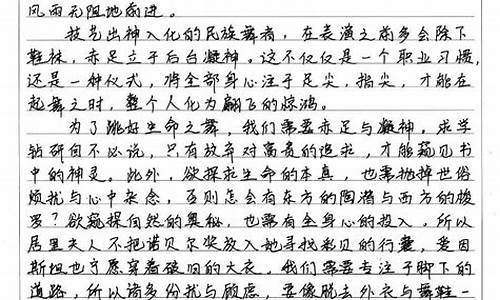 风雨无阻地前进。
技艺出神入化的民族舞者，在表演之前多会除下
鞋袜，赤足立于后台凝神。这不仅仅是一个职业习惯，
还是一种仪式，将全部身心注于足尖，指尖，才能在
起舞之时，整个人化为翩飞的惊鸿。
为了跳好生命之舞，我们需要赤足与凝神。求学
钻研自不必说，只有放弃对富贵的追求，才能窥见书
中的神灵。此外，欲探求生命的本真，也需抛掉世俗
烦扰与心中杂念，否则怎会有东方的陶潜与西方的梭
罗？欲窥探自然的奥秘，也需有全身心的投入。所以
居里夫人不把诺贝尔奖放入她寻找彩贝的行囊，爱因
斯坦也宁愿穿着破旧的大衣。我们需要专注于脚下的
道路，所以请多份拔与顾虑，要像脱去外衣与舞鞋一